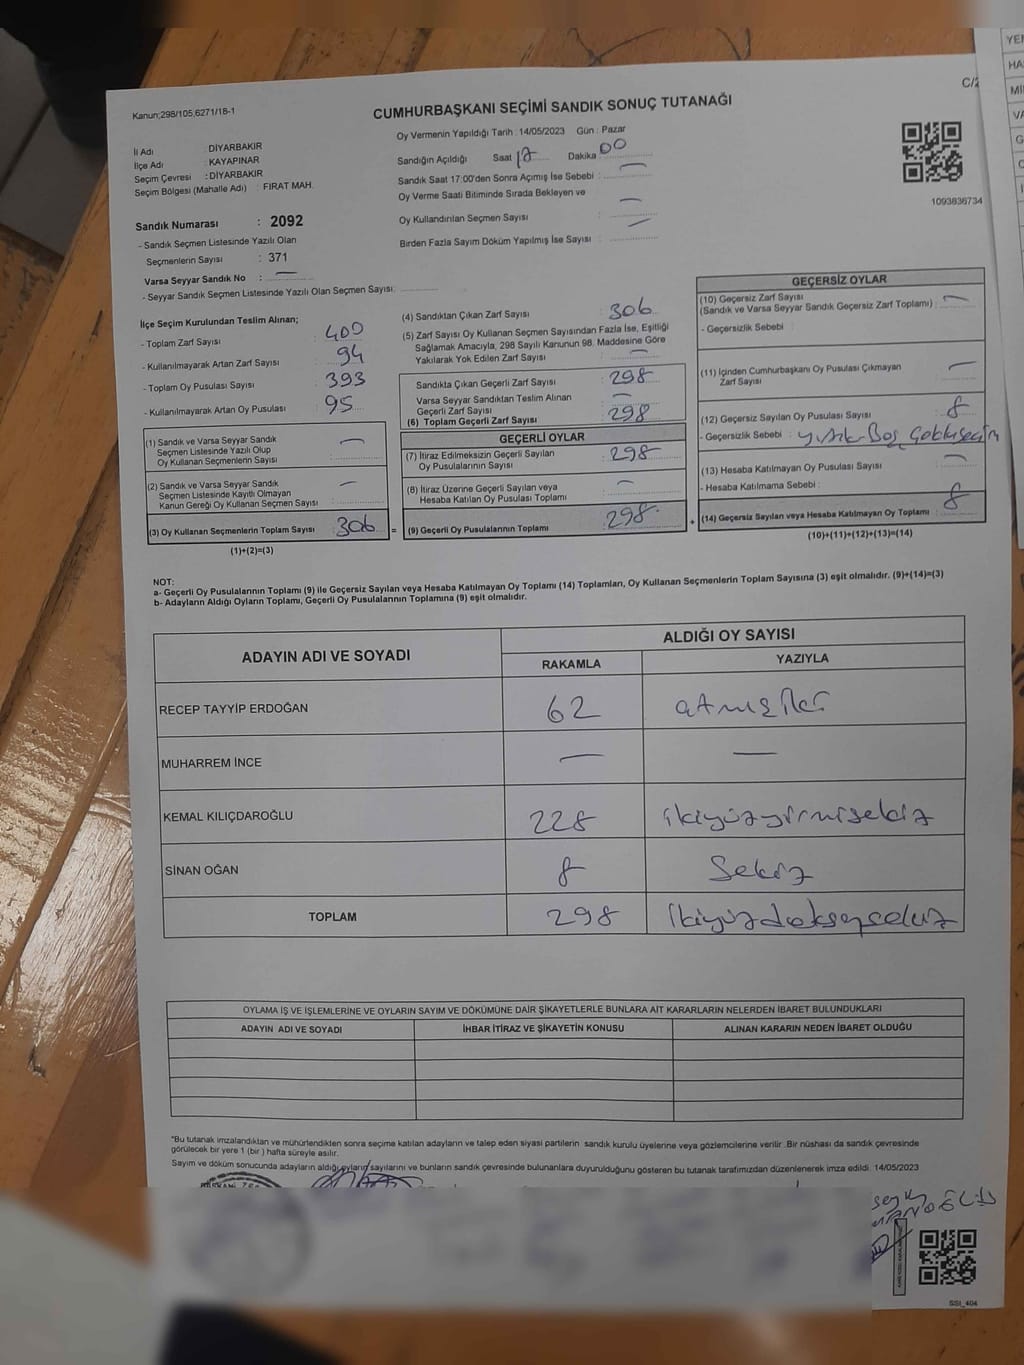 Kanun;298/105,6271/18-1
CUMHURBAŞKANI SEÇİMİ SANDIK SONUÇ TUTANAĞI
C/2
İl Adı : DİYARBAKIR
İlçe Adı : KAYAPINAR
Seçim Çevresi : DİYARBAKIR
Seçim Bölgesi (Mahalle Adı) : FIRAT MAH.
Oy Vermenin Yapıldığı Tarih : 14/05/2023 Gün : Pazar
Sandığın Açıldığı Saat 17 Dakika 00
Sandık Saat 17:00'den Sonra Açımış İse Sebebi : —
Oy Verme Saati Bitiminde Sırada Bekleyen ve
Oy Kullandırılan Seçmen Sayısı : —
Birden Fazla Sayım Döküm Yapılmış İse Sayısı : —
1093836734
Sandık Numarası : 2092
- Sandık Seçmen Listesinde Yazılı Olan
Seçmenlerin Sayısı : 371
Varsa Seyyar Sandık No : —
- Seyyar Sandık Seçmen Listesinde Yazılı Olan Seçmen Sayısı:
İlçe Seçim Kurulundan Teslim Alınan;
- Toplam Zarf Sayısı : 400
- Kullanılmayarak Artan Zarf Sayısı : 94
- Toplam Oy Pusulası Sayısı : 393
- Kullanılmayarak Artan Oy Pusulası : 95
(1) Sandık ve Varsa Seyyar Sandık
Seçmen Listesinde Yazılı Olup
Oy Kullanan Seçmenlerin Sayısı : —
(2) Sandık ve Varsa Seyyar Sandık
Seçmen Listesinde Kayıtlı Olmayan
Kanun Gereği Oy Kullanan Seçmen Sayısı : —
(3) Oy Kullanan Seçmenlerin Toplam Sayısı : 306 =
(1)+(2)=(3)
(4) Sandıktan Çıkan Zarf Sayısı : 306
(5) Zarf Sayısı Oy Kullanan Seçmen Sayısından Fazla İse, Eşitliği
Sağlamak Amacıyla, 298 Sayılı Kanunun 98. Maddesine Göre
Yakılarak Yok Edilen Zarf Sayısı : —
Sandıkta Çıkan Geçerli Zarf Sayısı : 298
Varsa Seyyar Sandıktan Teslim Alınan
Geçerli Zarf Sayısı : —
(6) Toplam Geçerli Zarf Sayısı : 298
GEÇERLİ OYLAR
(7) İtiraz Edilmeksizin Geçerli Sayılan
Oy Pusulalarının Sayısı : 298
(8) İtiraz Üzerine Geçerli Sayılan veya
Hesaba Katılan Oy Pusulası Toplamı : —
(9) Geçerli Oy Pusulalarının Toplamı : 298 +
GEÇERSİZ OYLAR
(10) Geçersiz Zarf Sayısı
(Sandık ve Varsa Seyyar Sandık Geçersiz Zarf Toplamı) : —
- Geçersizlik Sebebi :
(11) İçinden Cumhurbaşkanı Oy Pusulası Çıkmayan
Zarf Sayısı : —
(12) Geçersiz Sayılan Oy Pusulası Sayısı : 8
- Geçersizlik Sebebi : yırtık Boş
(13) Hesaba Katılmayan Oy Pusulası Sayısı : —
- Hesaba Katılmama Sebebi :
(14) Geçersiz Sayılan veya Hesaba Katılmayan Oy Toplamı : 8
(10)+(11)+(12)+(13)=(14)
NOT:
a- Geçerli Oy Pusulalarının Toplamı (9) ile Geçersiz Sayılan veya Hesaba Katılmayan Oy Toplamı (14) Toplamları, Oy Kullanan Seçmenlerin Toplam Sayısına (3) eşit olmalıdır. (9)+(14)=(3)
b- Adayların Aldığı Oyların Toplamı, Geçerli Oy Pusulalarının Toplamına (9) eşit olmalıdır.
ADAYIN ADI VE SOYADI
ALDIĞI OY SAYISI
RAKAMLA YAZIYLA
RECEP TAYYİP ERDOĞAN 62 atmışiki
MUHARREM İNCE — —
KEMAL KILIÇDAROĞLU 228 ikiyüzyirmisekiz
SİNAN OĞAN 8 Sekiz
TOPLAM 298 ikiyüzdoksansekiz
OYLAMA İŞ VE İŞLEMLERİNE VE OYLARIN SAYIM VE DÖKÜMÜNE DAİR ŞİKAYETLERLE BUNLARA AİT KARARLARIN NELERDEN İBARET BULUNDUKLARI
ADAYIN ADI VE SOYADI İHBAR İTİRAZ VE ŞİKAYETİN KONUSU ALINAN KARARIN NEDEN İBARET OLDUĞU
*Bu tutanak imzalandıktan ve mühürlendikten sonra seçime katılan adayların ve talep eden siyasi partilerin sandık kurulu üyelerine veya gözlemcilerine verilir .Bir nüshası da sandık çevresinde
görülecek bir yere 1 (bir ) hafta süreyle asılır.
Sayım ve döküm sonucunda adayların aldığı oyların sayılarını ve bunların sandık çevresinde bulunanlara duyurulduğunu gösteren bu tutanak tarafımızdan düzenlenerek imza edildi. 14/05/2023
SSİ_404